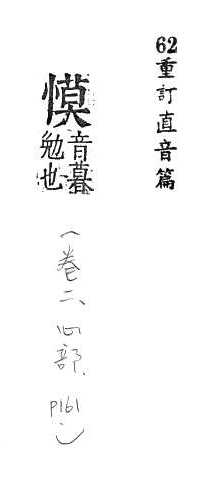 62重訂直音篇
慔
音暮
勉也
(卷二、心部、P161.)